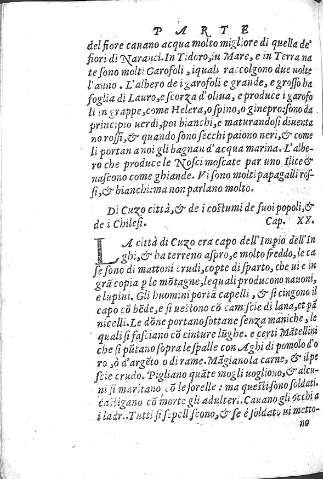 PARTE
del fiore cauano acqua molto migliore di quella de'
fiori di Naranci. In Tidoro, in Mare, e in Terra na
te sono molti Garofoli, i quali raccolgono due uolte
l'anno. L'albero de i garofoli e grande, e grosso ha
foglia di Lauro, e scorza d'oliua, e produce i garofo
li in grappe, come Helera, o spino, o ginepro: sono da
principio uerdi, poi bianchi, e maturandosi diuenta
no rossi, & quando sono secchi paiono neri, & come
li portan a noi gli bagnan d'acqua marina. L'albe-
ro che produce le Nosci moscate par uno Ilice &
nascono come ghiande. Vi sono molti papagalli ros-
si, & bianchi: ma non parlano molto.
Di Cuzo città, & de i costumi de suoi popoli, &
de i Chilesi. Cap. XX.
LA città di Cuzo era capo dell'Impio dell'In
ghi, & ha terreno aspro, e molto freddo, le ca
se sono di mattoni crudi, copte di sparto, che ui e in
grã copia p le mõtagne, lequali producono nauoni,
e lupini. Gli huomini portã capelli, & si cingono il
capo cõ bẽde, e si uestono cõ camiscie di lana, et pã
nicelli. Le dõne portano sottane senza maniche, le
quali si fasciano cõ cinture lũghe. e certi Mãtellini
che si pũtano sopra le spalle con Aghi di pomolo d'o
ro, ò d'argẽto o di rame. Mãgiano la carne, & il pe
scie crudo. Pigliano quãte mogli uogliono, & alcu-
ni si maritano cõ le sorelle: ma questi sono soldati.
castigano cõ morte gli adulteri. Cauano gli occhi a
i ladri. Tutti si sepelliscono, & se è soldato ui metto-
no